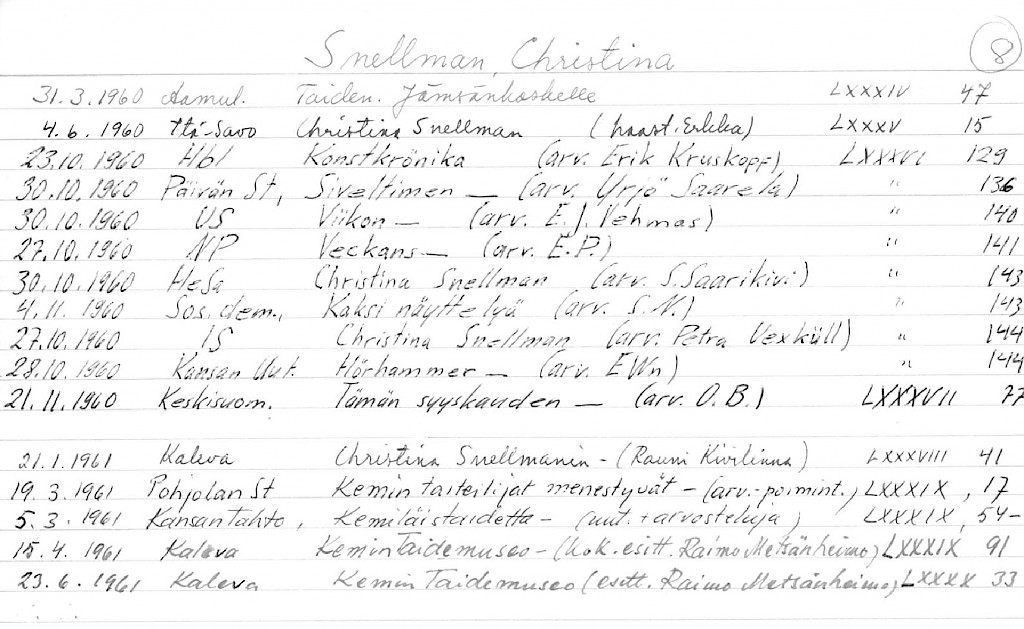 Snellman, Christina 8
31.3.1960 Aamul. Taiden. Jämsänkoskelle LXXXIV 47
4.6.1960 Itä-Savo Christina Snellman (haast. Erkka) LXXXV 15
23.10.1960 Hbl Konstkrönika (arv. Erik Kruskopf) LXXXVI 129
30.10.1960 Päivän St, Siveltimen — (arv. Yrjö Saarela) " 136
30.10.1960 US Viikon — (arv. E.J. Vehmas) " 140
27.10.1960 NP Veckans — (arv. E.P.) " 141
30.10.1960 HeSa Christina Snellman (arv. S. Saarikivi) " 143
4.11.1960 Sos.dem., Kaksi näyttelyä (arv. S.N.) " 143
27.10.1960 IS Christina Snellman (arv. Petra Uexküll) " 144
28.10.1960 Kansan Uut. Hörhammer — (arv. EWn) " 144
21.11.1960 Keskisuom. Tämän syyskauden — (arv. O.B.) LXXXVII 77
21.1.1961 Kaleva Christina Snellmanin - (Rauni Kivilinna) LXXXVIII 41
19.3.1961 Pohjolan St Kemin taiteilijat menestyvät - (arv.-poimint.) LXXXIX, 17
5.3.1961 Kansan Tahto, Kemiläistaidetta - (uut. + arvosteluja) LXXXIX, 54-
15.4.1961 Kaleva Kemin Taidemuseo - (kok. esitt. Raimo Metsänheimo) LXXXIX 91
23.6.1961 Kaleva Kemin Taidemuseo (esitt. Raimo Metsänheimo) LXXXX 33